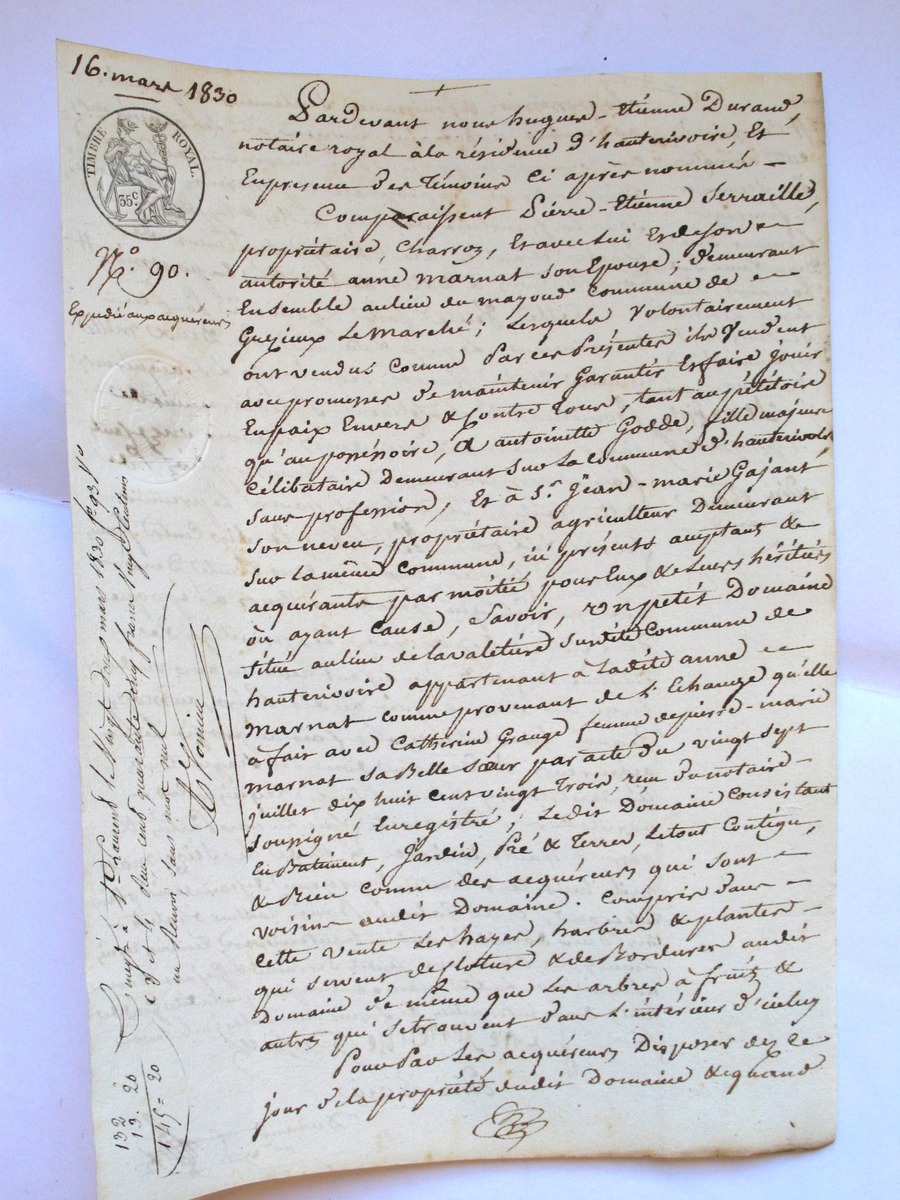 16. mars 1830
TIMBRE ROYAL.
35c
No. 90.
Expédié aux acquéreurs
Pardevant nous hugues-Etienne Durand,
notaire royal à la résidence d'hauterivoire, Et
En presence des Témoins ci après nommés -
Comparaissent Pierre-Etienne Serraille,
propriétaire, Charron, Et avec Lui Et de son
autorité anne marnat son Epouse; demeurant
Ensemble au lieu du mazoud commune de
Grezieux Le Marché; Lesquels volontairement
ont vendus comme Par ces Présentes ils Vendent
avec promesses de maintenir Garantir Et faire jouir
En paix Envers & Contre Tous, tant au pétitoire
qu'au possessoire, a antoinette Godde, fille majeure
Célibataire Demeurant sur La commune d'hauterivoire
sans profession, Et à Sr. Jean-marie Gajant,
son neveu, propriétaire agriculteur Demeurant
sur La même commune, ici présents acceptants &
acquérants par moitié pour Eux & Leurs héritiers
où ayant cause, Savoir, un petit Domaine
situé au lieu de Lavaleture Surdite Commune de
hauterivoire appartenant à Ladite anne
marnat comme provenant de L'Echange qu'elle
à fait avec Catherine Grange femme de pierre-marie
marnat sa Belle Sœur par acte du vingt sept
juillet dix huit cent vingt Trois, reçu du notaire -
soussigné Enregistré; Ledit Domaine Consistant
En Batiment, Jardin, Pré & Terres, Le tout Contigu,
& Bien connu des acquéreurs qui sont
voisins audit Domaine. Compris dans -
cette vente Les hayes, harbres & plantes -
qui servent de Cloture & de Bordures audit
Domaine de même que Les arbres à fruits &
autres qui se trouvent dans L'intérieur d'icelui
Pour Par Les acquéreurs Disposer dez ce
jour de la propriété dudit Domaine & quand
Enregé à St Laurent le vingt deux mars 1830 fo 93 Vo
Deux cent quarante cinq francs vingt centimes
132
13. 20
145 = 20